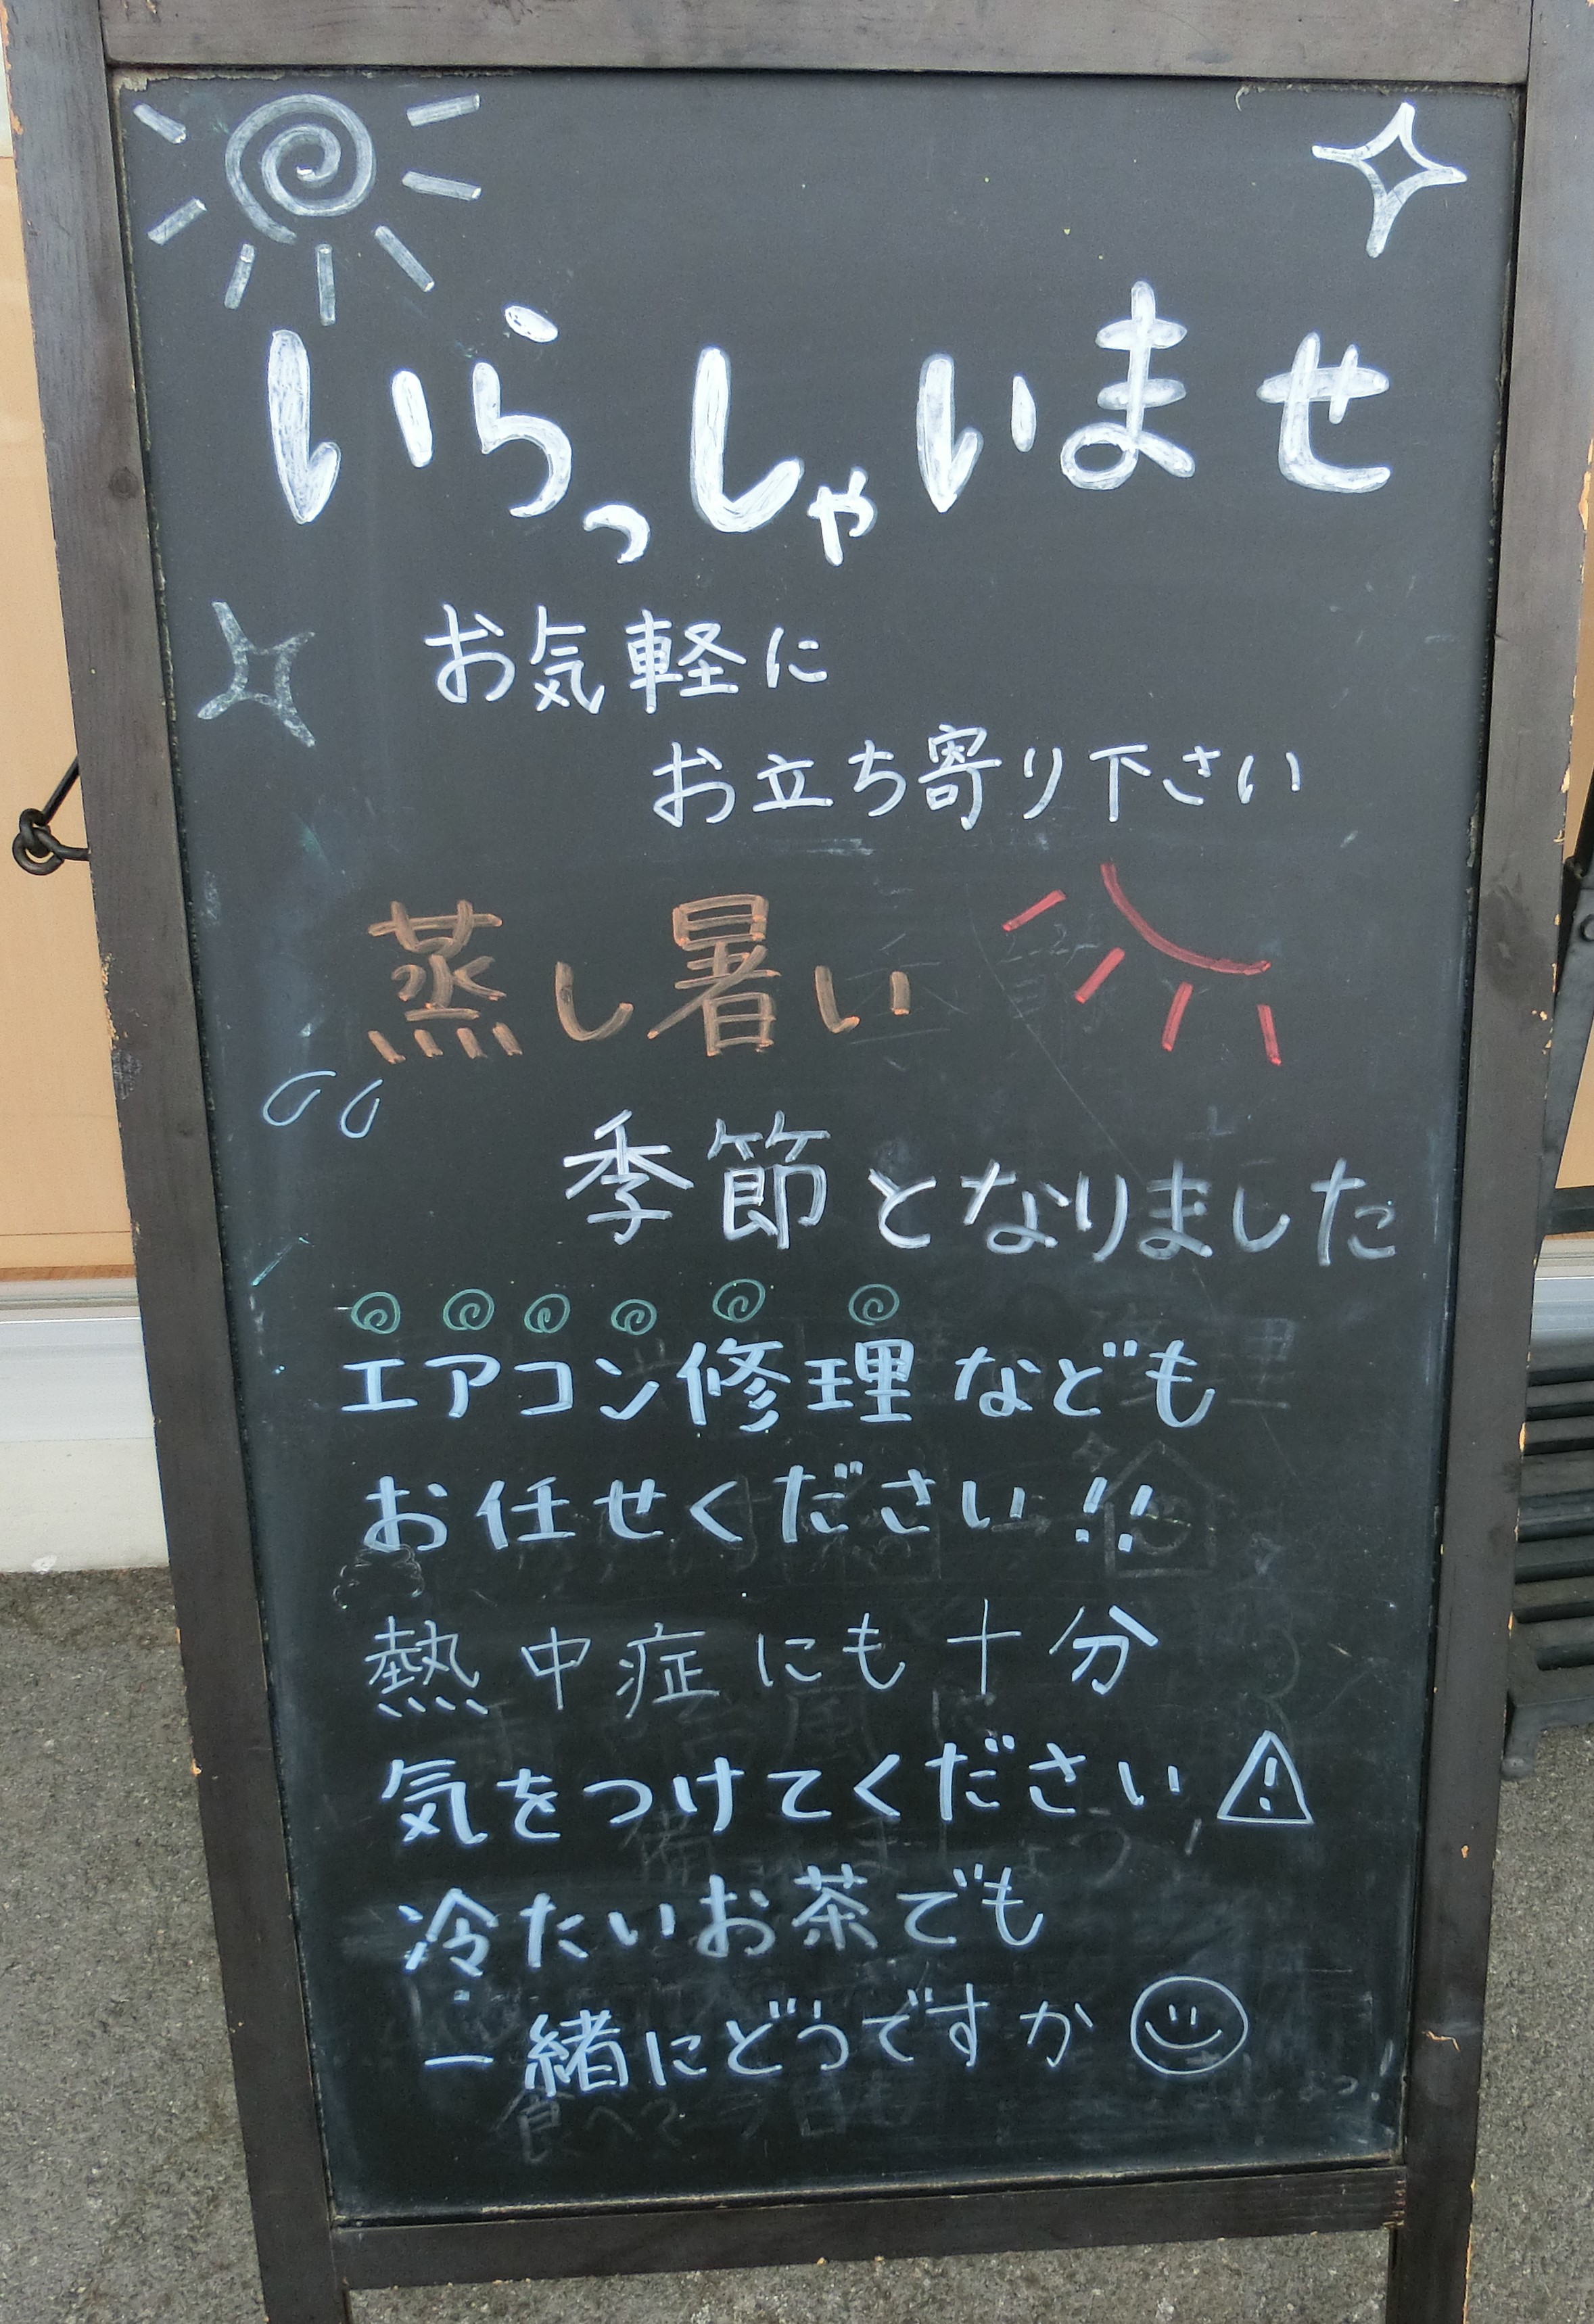 いらっしゃいませ
お気軽に
お立ち寄り下さい
蒸し暑い
季節となりました
エアコン修理なども
お任せください!!
熱中症にも十分
気をつけてください⚠
冷たいお茶でも
一緒にどうですか